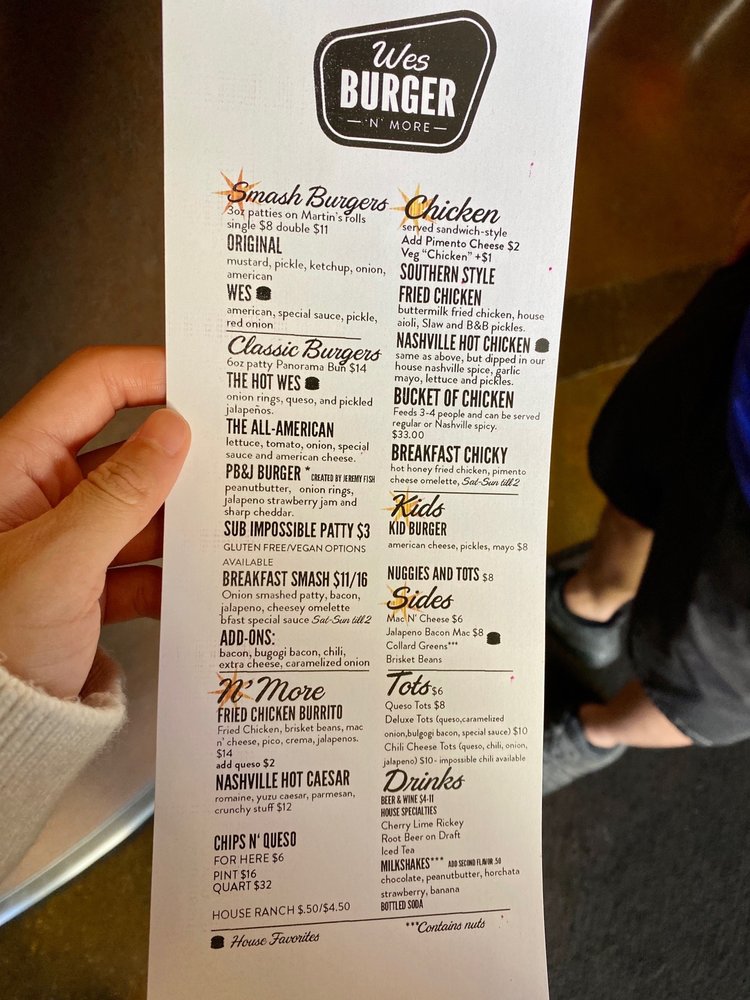 Wes
BURGER
'N' MORE
Smash Burgers
3oz patties on Martin's rolls
single $8 double $11
ORIGINAL
mustard, pickle, ketchup, onion,
american
WES
american, special sauce, pickle,
red onion
Classic Burgers
6oz patty Panorama Bun $14
THE HOT WES
onion rings, queso, and pickled
jalapeños.
THE ALL-AMERICAN
lettuce, tomato, onion, special
sauce and american cheese.
PB&J BURGER * CREATED BY JEREMY FISH
peanutbutter, onion rings,
jalapeno strawberry jam and
sharp cheddar.
SUB IMPOSSIBLE PATTY $3
GLUTEN FREE/VEGAN OPTIONS
AVAILABLE
BREAKFAST SMASH $11/16
Onion smashed patty, bacon,
jalapeno, cheesey omelette
bfast special sauce Sat-Sun till 2
ADD-ONS:
bacon, bugogi bacon, chili,
extra cheese, caramelized onion
N' More
FRIED CHICKEN BURRITO
Fried Chicken, brisket beans, mac
n' cheese, pico, crema, jalapenos.
$14
add queso $2
NASHVILLE HOT CAESAR
romaine, yuzu caesar, parmesan,
crunchy stuff $12
CHIPS N' QUESO
FOR HERE $6
PINT $16
QUART $32
HOUSE RANCH $.50/$4.50
House Favorites
Chicken
served sandwich-style
Add Pimento Cheese $2
Veg "Chicken" +$1
SOUTHERN STYLE
FRIED CHICKEN
buttermilk fried chicken, house
aioli, Slaw and B&B pickles.
NASHVILLE HOT CHICKEN
same as above, but dipped in our
house nashville spice, garlic
mayo, lettuce and pickles.
BUCKET OF CHICKEN
Feeds 3-4 people and can be served
regular or Nashville spicy.
$33.00
BREAKFAST CHICKY
hot honey fried chicken, pimento
cheese omelette, Sat-Sun till 2
Kids
KID BURGER
american cheese, pickles, mayo $8
NUGGIES AND TOTS $8
Sides
Mac N' Cheese $6
Jalapeno Bacon Mac $8
Collard Greens***
Brisket Beans
Tots $6
Queso Tots $8
Deluxe Tots (queso,caramelized
onion,bulgogi bacon, special sauce) $10
Chili Cheese Tots (queso, chili, onion,
jalapeno) $10- impossible chili available
Drinks
BEER & WINE $4-11
HOUSE SPECIALTIES
Cherry Lime Rickey
Root Beer on Draft
Iced Tea
MILKSHAKES*** ADD SECOND FLAVOR .50
chocolate, peanutbutter, horchata
strawberry, banana
BOTTLED SODA
***Contains nuts